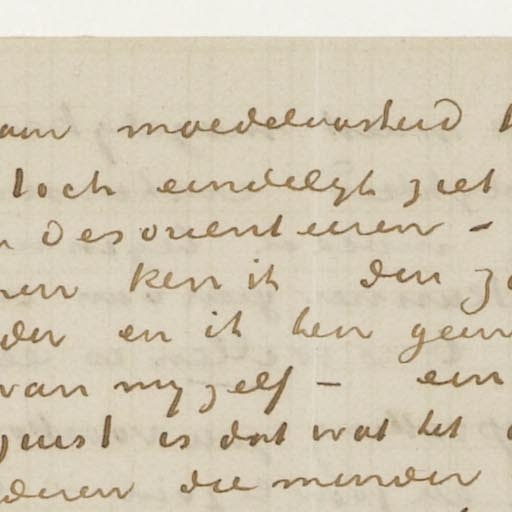 aan moedeloosheid
toch eindelyk ziet
desorienteeren –
nen ken ik den
der en ik ben geen
van myzelf – een
juist is dat wat het
deren die minder